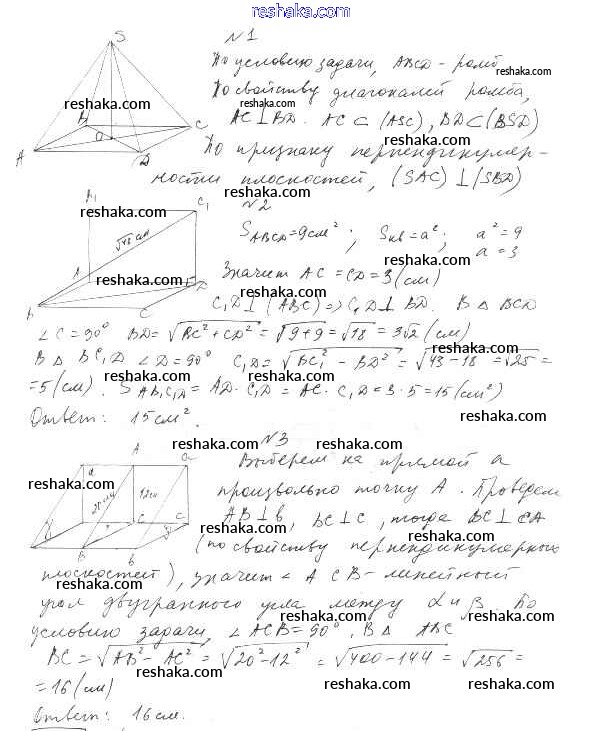 reshaka.com
S
N1
По условию задачи, ABCD - ромб
По свойству диагоналей ромба,
AC ⊥ BD. AC ⊂ (ASC), BD ⊂ (BSD)
По признаку перпендикуляр-
ности плоскостей, (SAC) ⊥ (SBD)
A B C D O
N2
S ABCD = 9 см²; Sкв = a²; a² = 9
a = 3
Значит AC = CD = 3 (см)
C₁D ⊥ (ABC) => C₁D ⊥ BD. В Δ BCD
√43 см
∠C = 90° BD = √BC² + CD² = √9+9 = √18 = 3√2 (см)
В Δ BC₁D ∠D = 90° C₁D = √BC₁² - BD² = √43 - 18 = √25 =
= 5 (см). S AB₁C₁D = AD · C₁D = AC · C₁D = 3 · 5 = 15 (см²)
Ответ: 15 см².
N3
Выберем на прямой a
произвольно точку A. Проведем
AB ⊥ b, BC ⊥ c, тогда BC ⊥ CA
(по свойству перпендикулярных
плоскостей), значит ∠ ACB - линейный
угол двугранного угла между α и β. По
условию задачи, ∠ACB = 90°. В Δ ABC
BC = √AB² - AC² = √20² - 12² = √400 - 144 = √256 =
= 16 (см)
Ответ: 16 см.